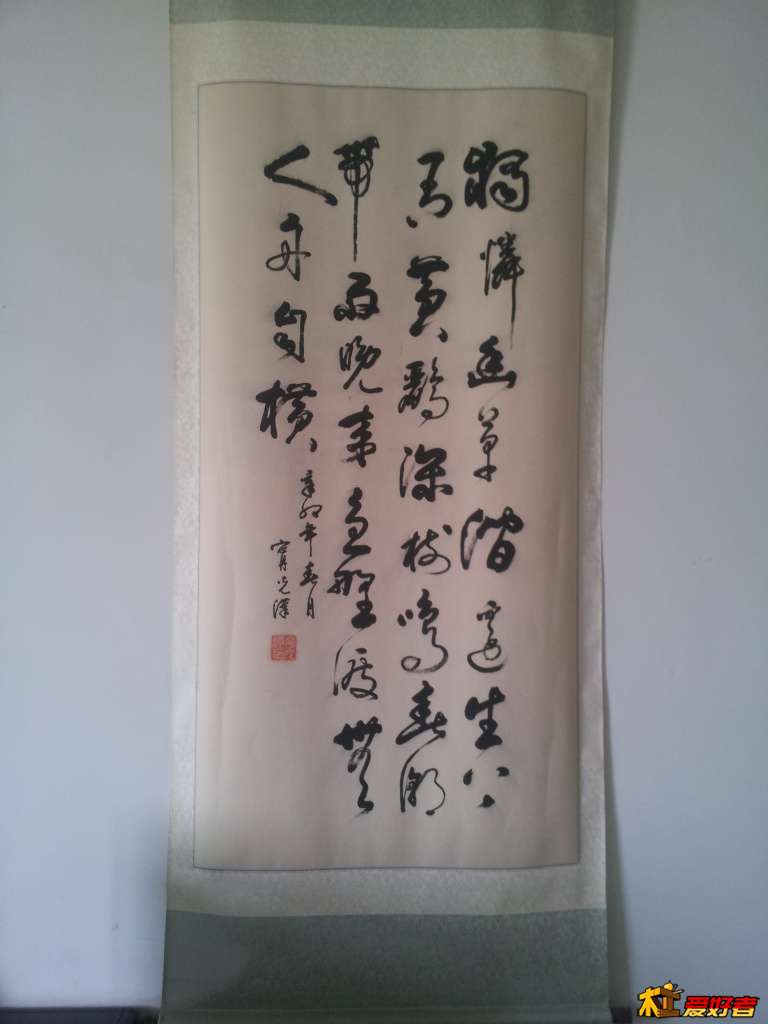 獨憐幽草澗邊生上
有黃鸝深樹鳴春潮
帶雨晚來急野渡無
人舟自橫
辛卯年春月
光澤
爱好者